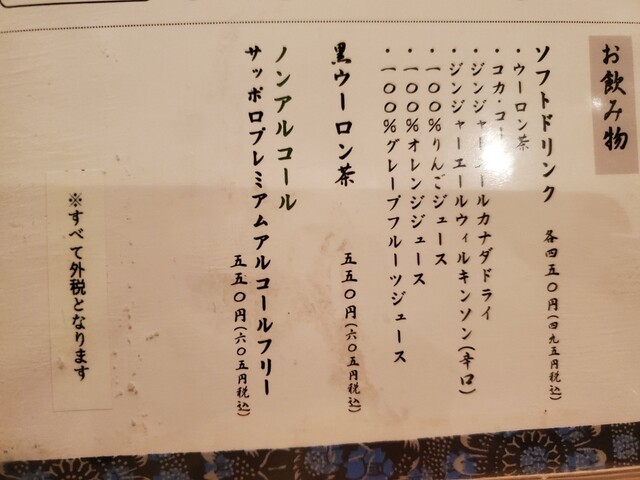 お飲み物
ソフトドリンク 各四五〇円(四九五円税込)
・ウーロン茶
・コカ・コー
・ジンジャーエールカナダドライ
・ジンジャーエールウィルキンソン(辛口)
・一〇〇%りんごジュース
・一〇〇%オレンジジュース
・一〇〇%グレープフルーツジュース
黒ウーロン茶 五五〇円(六〇五円税込)
ノンアルコール
サッポロプレミアムアルコールフリー
五五〇円(六〇五円税込)
※すべて外税となります